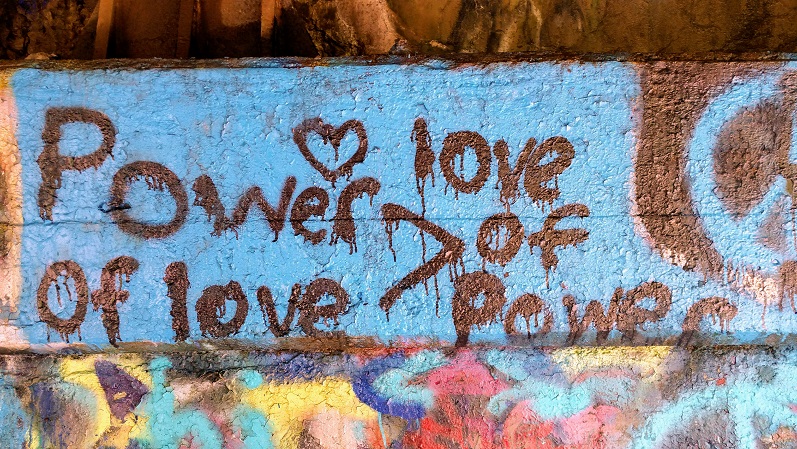 Power
Of love
>
love
of
Power